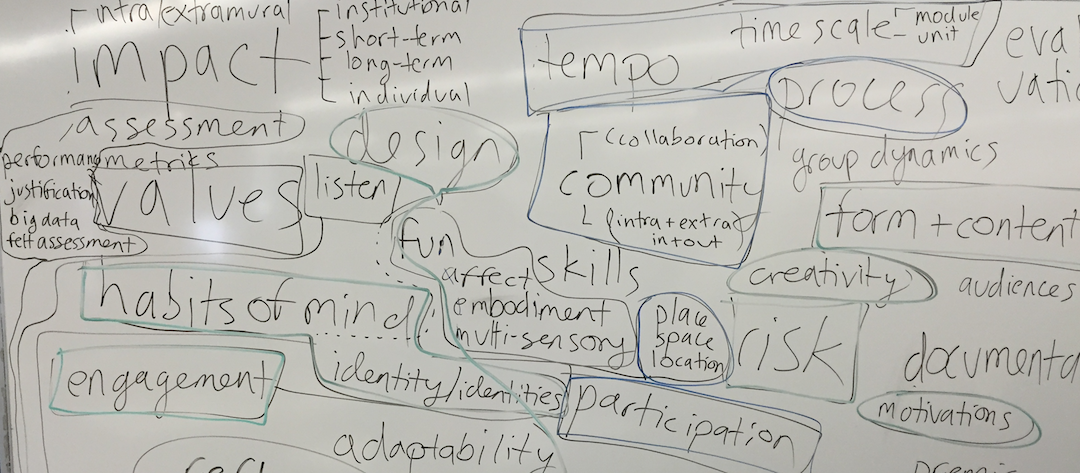 intra/extramural
impact
institutional
short-term
long-term
individual
assessment
performan
metrics
justification
big data
felt assessment
values
listen
design
tempo
time scale
module
unit
eva
process
(collaboration)
community
(intra + extra)
in+out
group dynamics
form + content
fun
affect
embodiment
multi-sensory
skills
creativity
audiences
habits of mind
place
space
location
risk
documenta
engagement
identity/identities
participation
motivations
adaptability